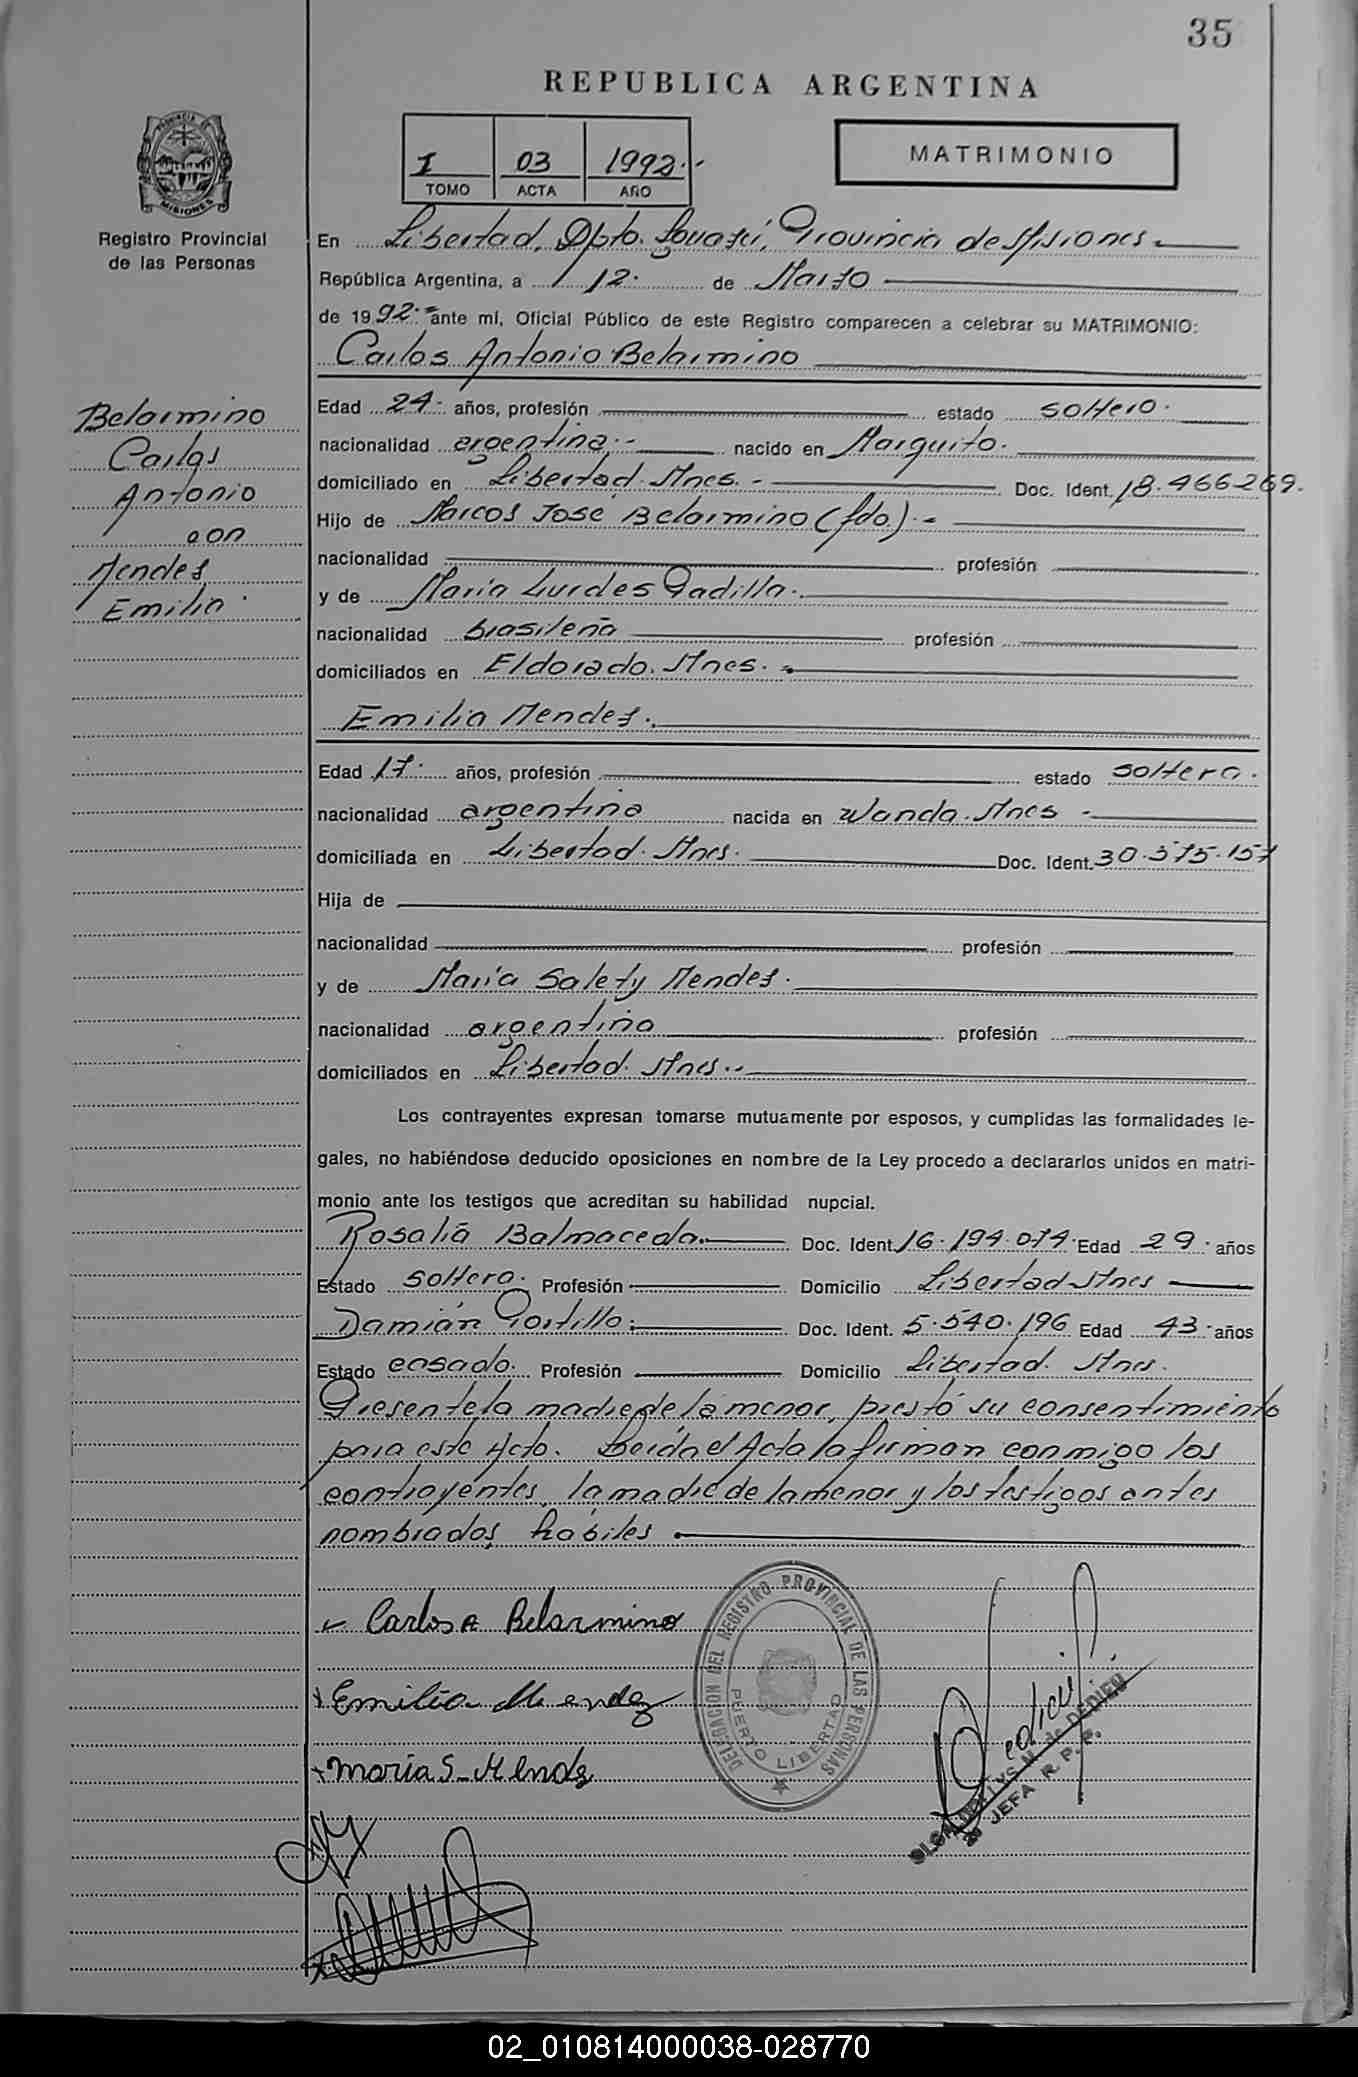 35
REPUBLICA ARGENTINA
I 03 1992.-
TOMO ACTA AÑO
MATRIMONIO
PROVINCIA DE MISIONES
Registro Provincial
de las Personas
En Libertad, Dpto. Iguazú, Provincia de Misiones
República Argentina, a 12. de Marzo
de 1992.- ante mí, Oficial Público de este Registro comparecen a celebrar su MATRIMONIO:
Carlos Antonio Belarmino
Belarmino
Carlos
Antonio
con
Mendes
Emilia.
Edad 24. años, profesión estado soltero.
nacionalidad argentina.- nacido en Marguito.
domiciliado en Libertad. Mnes.- Doc. Ident. 18.466269.
Hijo de Marcos José Belarmino (fdo).-
nacionalidad profesión
y de María Lurdes Padilla.
nacionalidad brasileña profesión
domiciliados en Eldorado. Mnes.-
Emilia Mendes.
Edad 17. años, profesión estado soltera.
nacionalidad argentina nacida en Wanda. Mnes -
domiciliada en Libertad. Mnes. Doc. Ident. 30.575.157
Hija de
nacionalidad profesión
y de María Salety Mendes.
nacionalidad argentina profesión
domiciliados en Libertad. Mnes.-
Los contrayentes expresan tomarse mutuamente por esposos, y cumplidas las formalidades le-
gales, no habiéndose deducido oposiciones en nombre de la Ley procedo a declararlos unidos en matri-
monio ante los testigos que acreditan su habilidad nupcial.
Rosalía Balmaceda. Doc. Ident. 16.194.074 Edad 29. años
Estado soltera. Profesión Domicilio Libertad Mnes
Damián Portillo. Doc. Ident. 5.540.196 Edad 43. años
Estado casado. Profesión Domicilio Libertad. Mnes.
Presente la madre de la menor, prestó su consentimiento
para este Acto. Leída el Acta la firman conmigo los
contrayentes, la madre de la menor y los testigos antes
nombrados, hábiles
Carlos A Belarmino
Emilia Mendez
Maria S. Mends
DELEGACION DEL REGISTRO PROVINCIAL DE LAS PERSONAS
PUERTO LIBERTAD
de DEDIEU
JEFA R. P. P.
02_010814000038-028770